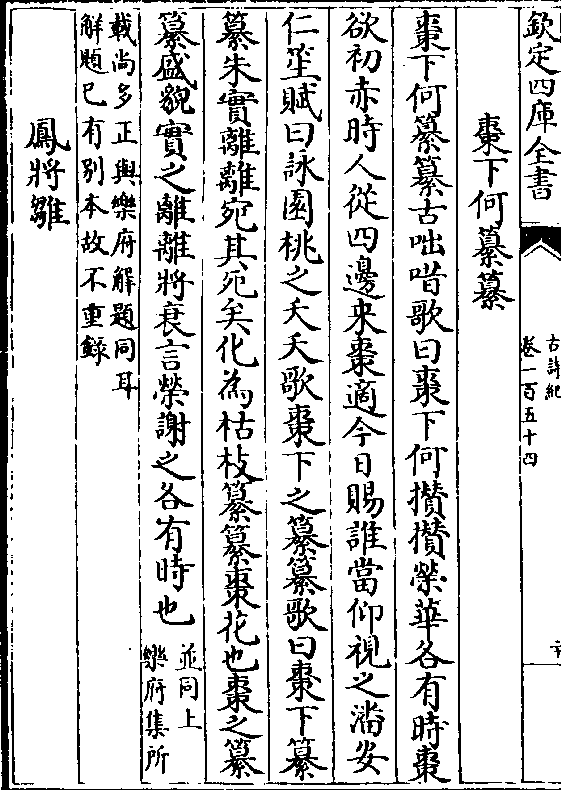 欽定四庫全書
古詩紀
卷一百五十四
棗下何纂纂
棗下何纂纂古咄唶歌曰棗下何攅攅榮華各有時棗
欲初赤時人從四邊來棗適今日賜誰當仰視之潘安
仁笙賦曰詠園桃之夭夭歌棗下之纂纂歌曰棗下纂
纂朱實離離宛其死矣化為枯枝纂纂棗花也棗之纂
纂盛貌實之離離將衰言榮謝之各有時也
並同上
樂府集所
載尚多正與樂府解題同耳
解題已有别本故不重錄
鳳將雛